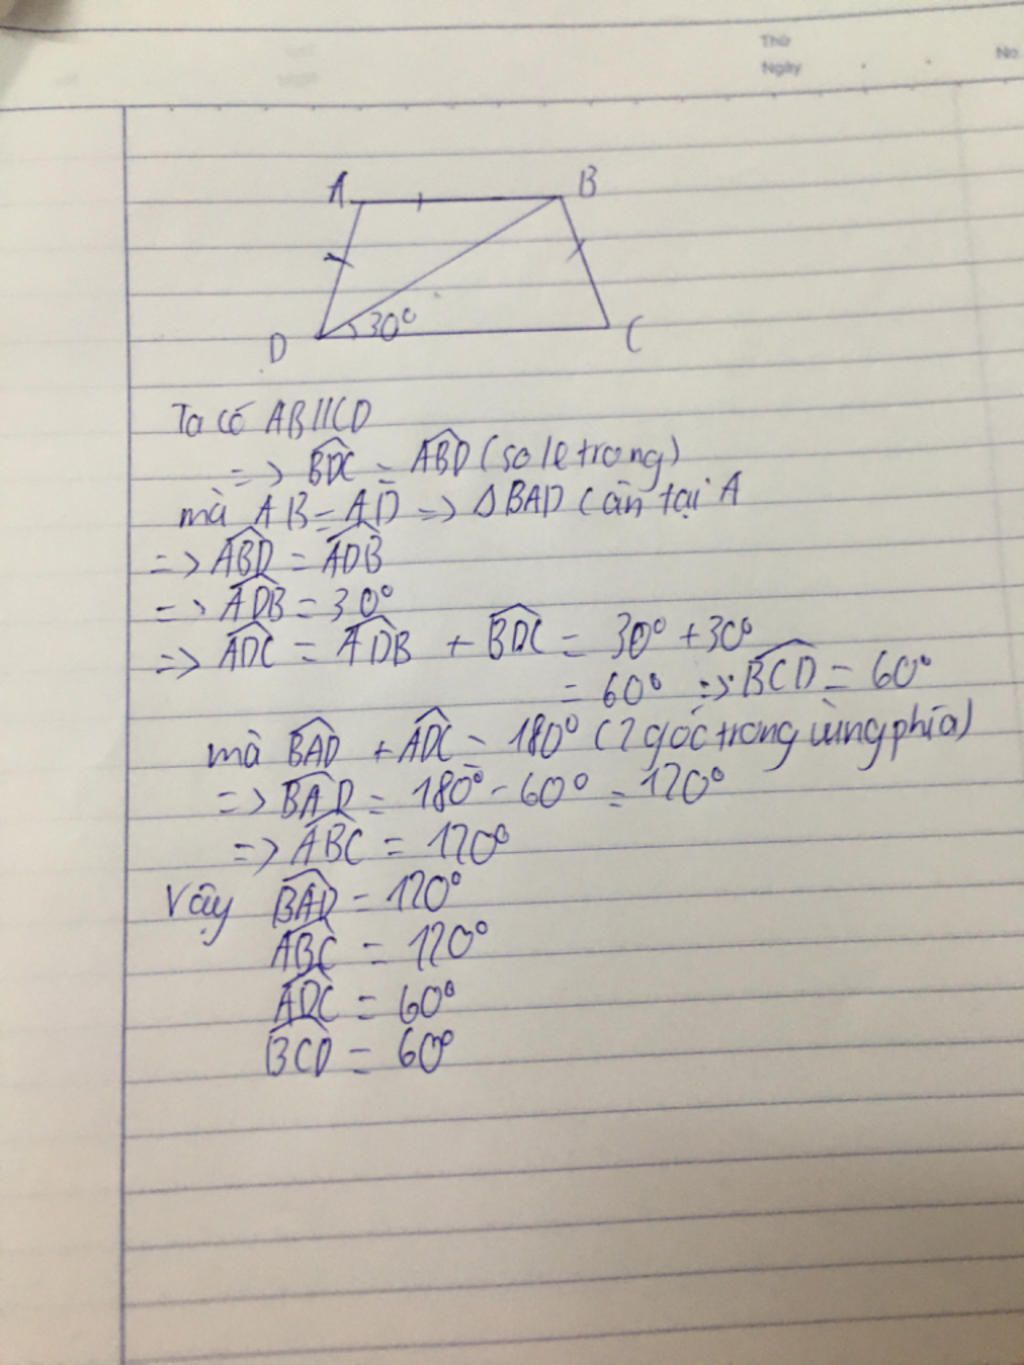 Thứ
Ngày
No
A
B
30°
D
C
Ta có AB//CD
=> BDC = ABD (so le trong)
mà AB = AD => Δ BAD cân tại A
=> ABD = ADB
=> ADB = 30°
=> ADC = ADB + BDC = 30° + 30°
= 60° => BCD = 60°
mà BAD + ADC = 180° (2 góc trong cùng phía)
=> BAD = 180° - 60° = 120°
=> ABC = 120°
Vậy BAD = 120°
ABC = 120°
ADC = 60°
BCD = 60°